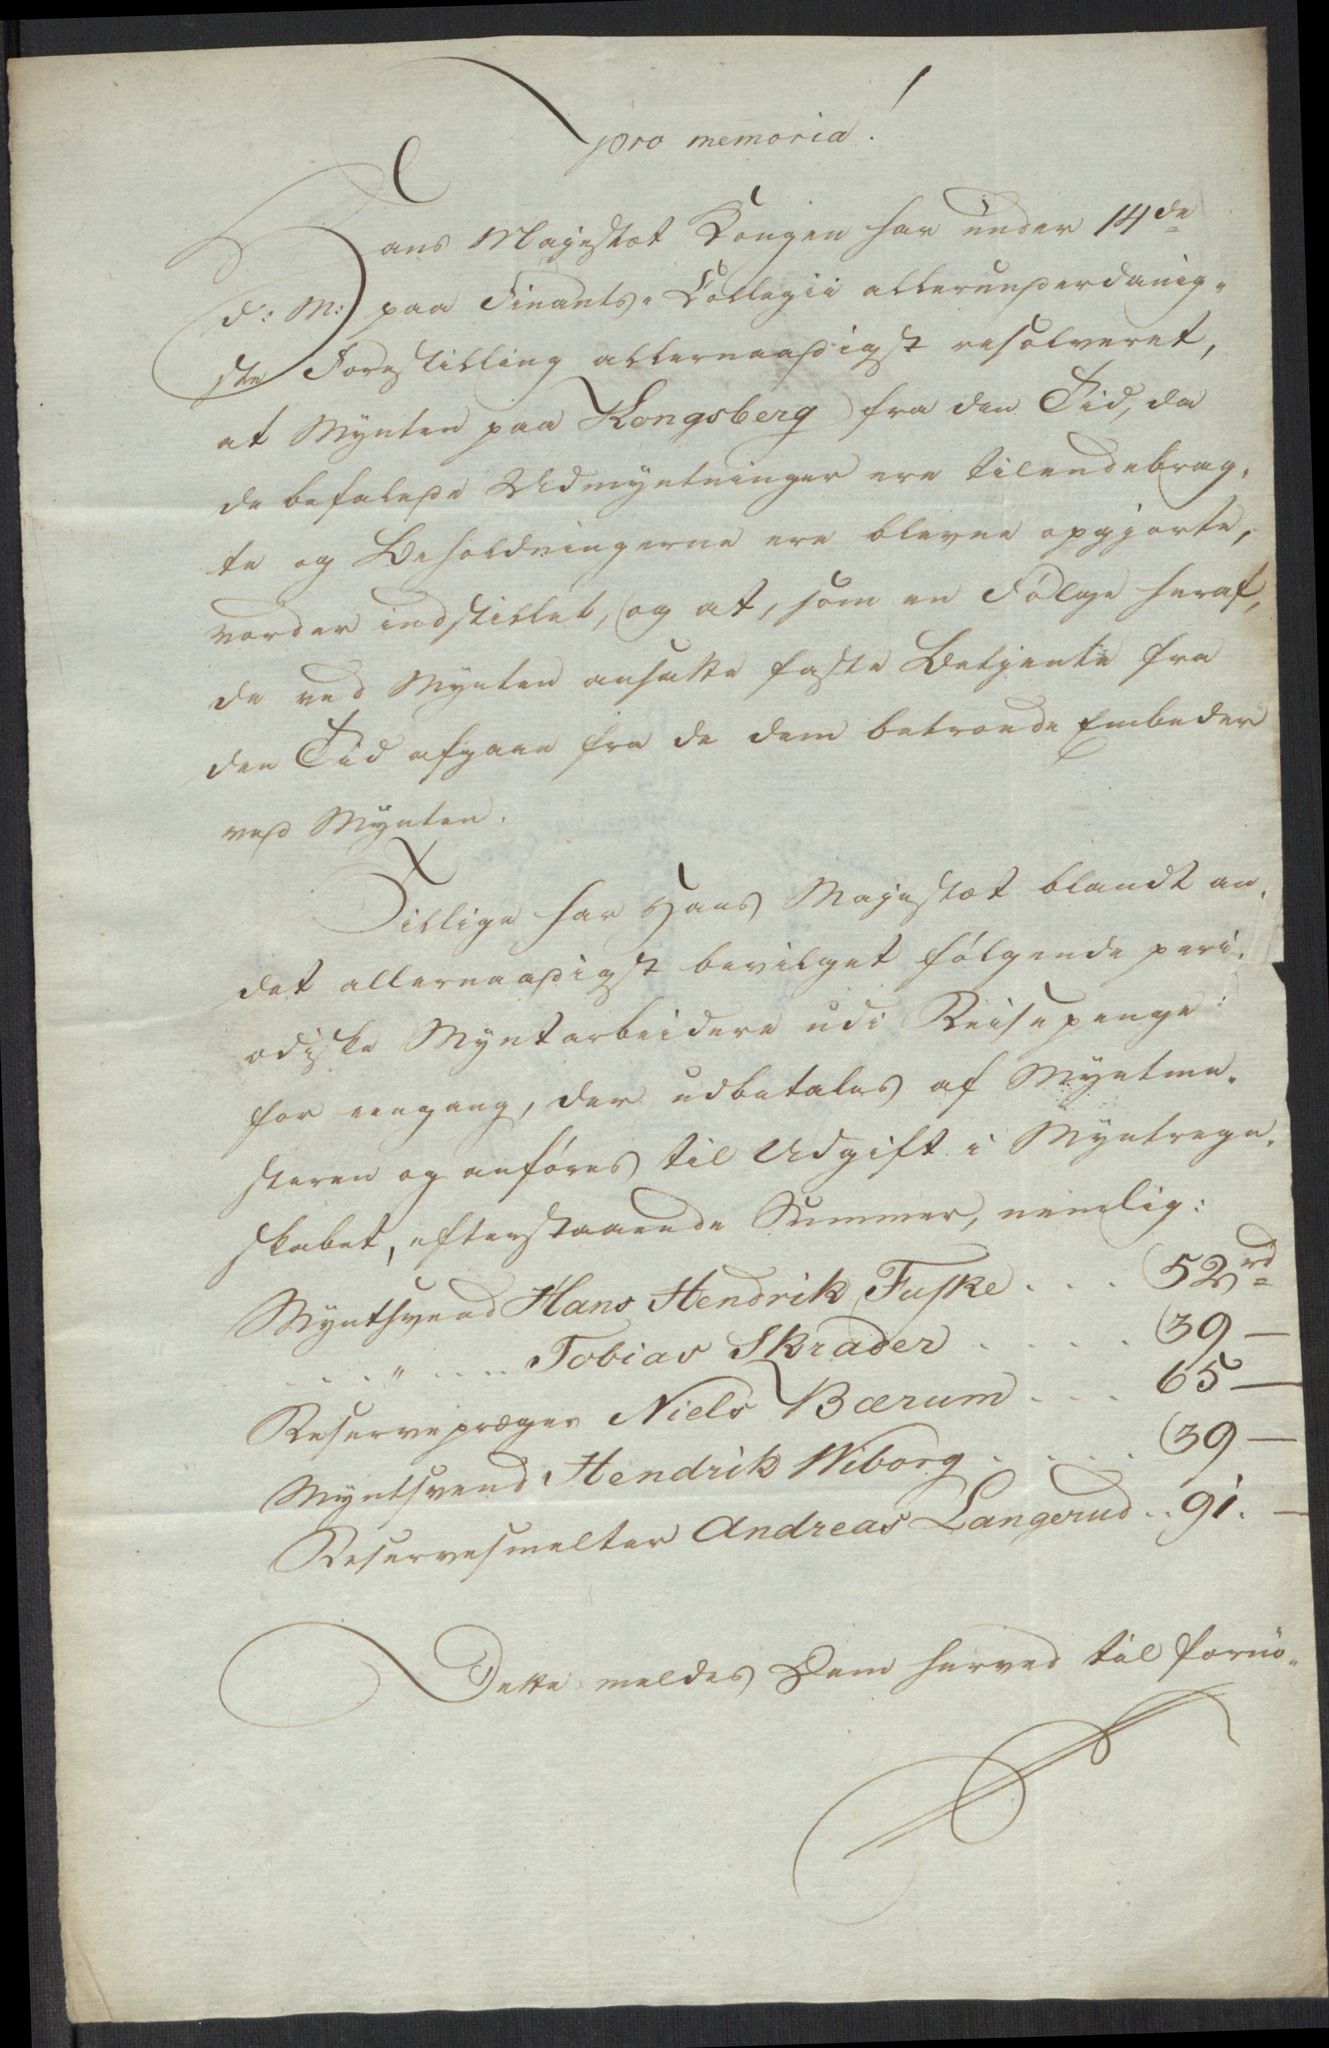 pro memoria!
Hans Majestæt Kongen har under 14de
d: M: paa Finants-Collegii allerunderdanig-
ste Forestilling allernaadigst resolveret,
at Mynten paa Kongsberg fra den Tid, da
de befalede Udmyntninger ere tilendebrag-
te og Beholdningerne ere blevne opgjorte,
vorder indstillet, og at, som en Følge heraf,
de ved Mynten ansatte faste Betjente fra
den Tid afgaae fra de dem betroede Embeder
ved Mynten.
Tillige har Hans Majestæt blandt an-
det allernaadigst bevilget følgende peri-
odiske Myntarbeidere udi Reisepenge
for eengang, der udbetales af Myntme-
steren og anføres til Udgift i Myntregn-
skabet, efterstaaende Summer, nemlig:
Myntsvend Hans Hendrik Fuske . . . 52 rd
. . . . " . . . . Tobias Skrader . . . . . 39 —
Reservepræger Niels Bærum . . . 65 —
Myntsvend Hendrik Wiborg . . . . . 39 —
Reservesmelter Andreas Langerud . . 91. —
Dette meldes Dem herved til fornø-